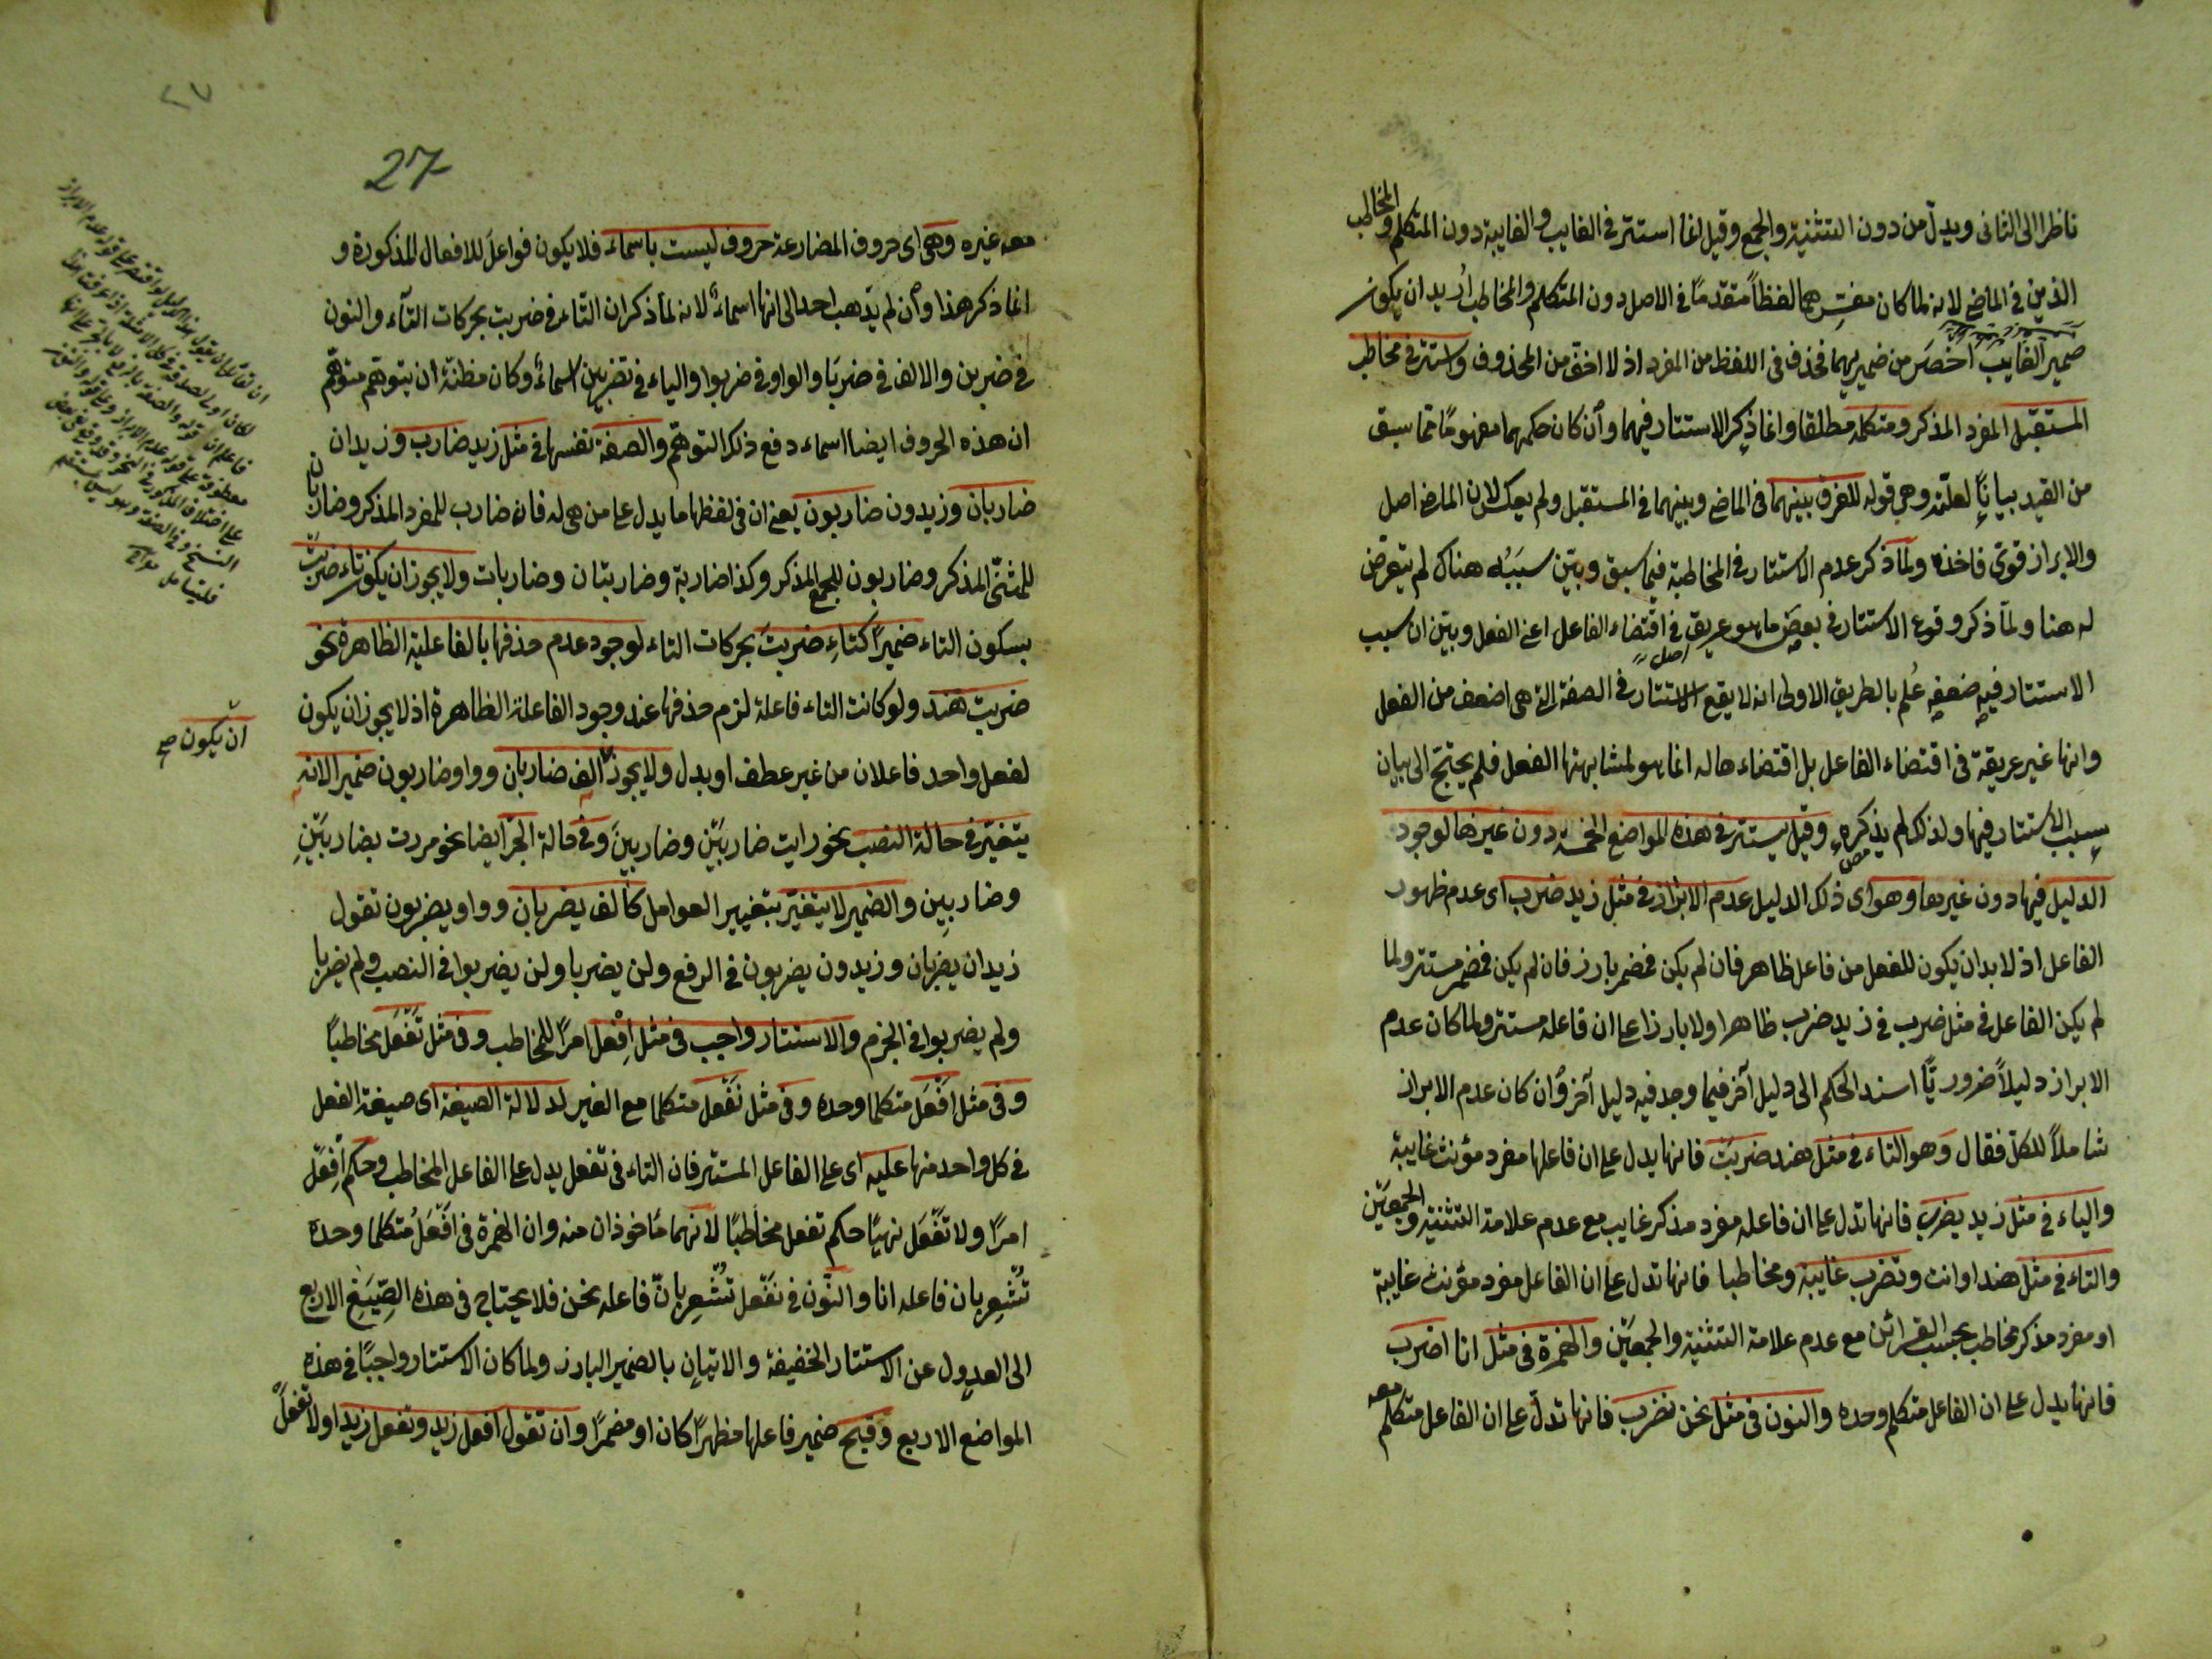 ناظرا الى الثانى ويدل من دون التثنية والجمع وقيل انما استتر فى الغايب والغايبة دون المتكلم والمخاطب
الذين فى الماضى لانه لما كان مفسرهما لفظاً متقدمًا فى الاصل دون المتكلم والمخاطب اُريد ان يكون
ضمير الغايب اخصَر من ضميريهما فحذف فى اللفظ من المفرد اذ لا اخف من المحذوف واستتر فى مخاطب
المستقبل المفرد المذكر ومتكلمه مطلقا وانما ذكر الاستتار فيهما وأن كان حكمهما مفهومًا مما سبق
من القيد بيانًا لعلته وهى قوله للفرق بينهما فى الماضى وبينهما فى المستقبل ولم يعكس لان الماضى اصل
والابراز قوىّ فاخذه ولمّا ذكر عدم الاستتار فى المخاطبة فيما سبق وبيّن سببَهُ هناك لم يتعرّض
له هنا ولمّا ذكر وقوع الاستتار فى بعض ما هو عريق فى اقتضاء الفاعل اعنى الفعل وبيّن ان سبب
الاستتار فيه ضعفه عُلم بالطريق الاولى انه لا يقع الاستتار فى الصفة التى هى اضعف من الفعل
وانها غير عريقة فى اقتضاء الفاعل بل اقتضاء حاله انما هو لمشابهتها الفعل فلم يحتج الى بيان
سبب الاستتار فيها ولذلك لم يذكره وقيل يستتر فى هذه المواضع الخمسة دون غيرها لوجود
الدليل فيها دون غيرها وهو اى ذلك الدليل عدم الابراز فى مثل زيد ضرب اى عدم ظهور
الفاعل اذ لا بد ان يكون للفعل من فاعل ظاهر فان لم يكن فضمير بارز فان لم يكن فضمير مستتر ولما
لم يكن الفاعل فى مثل ضرب فى زيد ضرب ظاهرا ولا بارزا علم ان فاعله مستتر ولما كان عدم
الابراز دليلاً ضروريّاً اسند الحكم الى دليل آخر فيما وجد فيه دليل آخر وأن كان عدم الابراز
شاملاً للكلّ فقال وهو التاء فى مثل هند ضربت فانها يدل على ان فاعلها مفرد مؤنث غايبة
والياء فى مثل زيد يضرب فانها تدل على ان فاعله مفرد مذكر غايب مع عدم علامة التثنية والجمعين
والتاء فى مثل هند او انت وتضرب غايبة ومخاطبا فانها تدل على ان الفاعل مفرد مؤنث غايبة
او مفرد مذكر مخاطب بحسب القرائن مع عدم علامة التثنية والجمعين والهمزة فى مثل انا اضرب
فانها يدل على ان الفاعل متكلم وحده والنون فى مثل نحن نضرب فانها تدلّ على ان الفاعل متكلم معه
٢٧
27
معه غيره وهى اى حروف المضارعة حروف ليست باسماء فلا يكون فواعلَ للافعال المذكورة و
انما ذكر هذا وأن لم يذهب احد الى انها اسماءٌ لانه لما ذكر ان التاء فى ضربت بحركات التّاء والنون
فى ضربن والالف فى ضربَا والواو فى ضربوا والياء فى تضربين اسماءٌ وكان مظنة ان يتوهم متوهّم
ان هذه الحروف ايضا اسماء دفع ذلك التوهّم والصفة نفسها فى مثل زيد ضارب وزيدان
ضاربان وزيدون ضاربون يعنى ان فى لفظها ما يدل على من هى له فان ضارب للمفرد المذكر وضاربان
للمثنّى المذكر وضاربون للجمع المذكر وكذا ضاربة وضاربتان وضاربات ولا يجوز ان يكون تاء ضربتْ
بسكون التاء ضميرًا كتاءِ ضربتَ بحركات التاء لوجود عدم حذفها بالفاعلية الظاهرة نحو
ضربت هند ولو كانت التاء فاعلة لزم حذفها عند وجود الفاعلة الظاهرة اذ لا يجوز ان يكون
لفعل واحد فاعلان من غير عطف او بدل ولا يجوز الف ضاربان وواو ضاربون ضمير الانه
ان يكون صح
يتغيّر فى حالة النصب نحو رايت ضاربَيْن وضاربِينَ وفى حالة الجرّ ايضا نحو مررت بضاربَيْنِ
وضاربِين والضمير لا يتغيّر بتغيير العوامل كالف يضربان وواو يضربون تقول
زيدان يضربان وزيدون يضربون فى الرفع ولن يضربا ولن يضربوا فى النصب ولم يضربا
ولم يضربوا فى الجزم والاستتار واجب فى مثل اِفْعل امرًا للمخاطب وفى مثل تَفْعَل مخاطبًا
وفى مثل افْعَل متكلما وحده وفى مثل نَفْعل متكلما مع الغير لدلالة الصيغة اى صيغة الفعل
فى كل واحد منها عليه اى على الفاعل المستتر فان التاء فى تفعل يدل على الفاعل المخاطب وحكم اِفْعل
امرًا ولا تَفْعَل نهيًا حكم تفعل مخاطبًا لانهما مأخوذان منه وان الهمزة فى افْعَلُ متكلما وحده
تُشْعِر بان فاعله انا والنّون فى نَفْعل تُشْعِر بانّ فاعله نحن فلا يحتاج فى هذه الصِّيَغ الاربع
الى العدول عن الاستتار الخفيفة والاتيان بالضمير البارز ولما كان الاستتار واجبًا فى هذه
المواضع الاربع وقبح ضمير فاعلها مظهرًا كان او مضمرًا وان تقول افعل زيد وتفعل زيد او لا تفعل